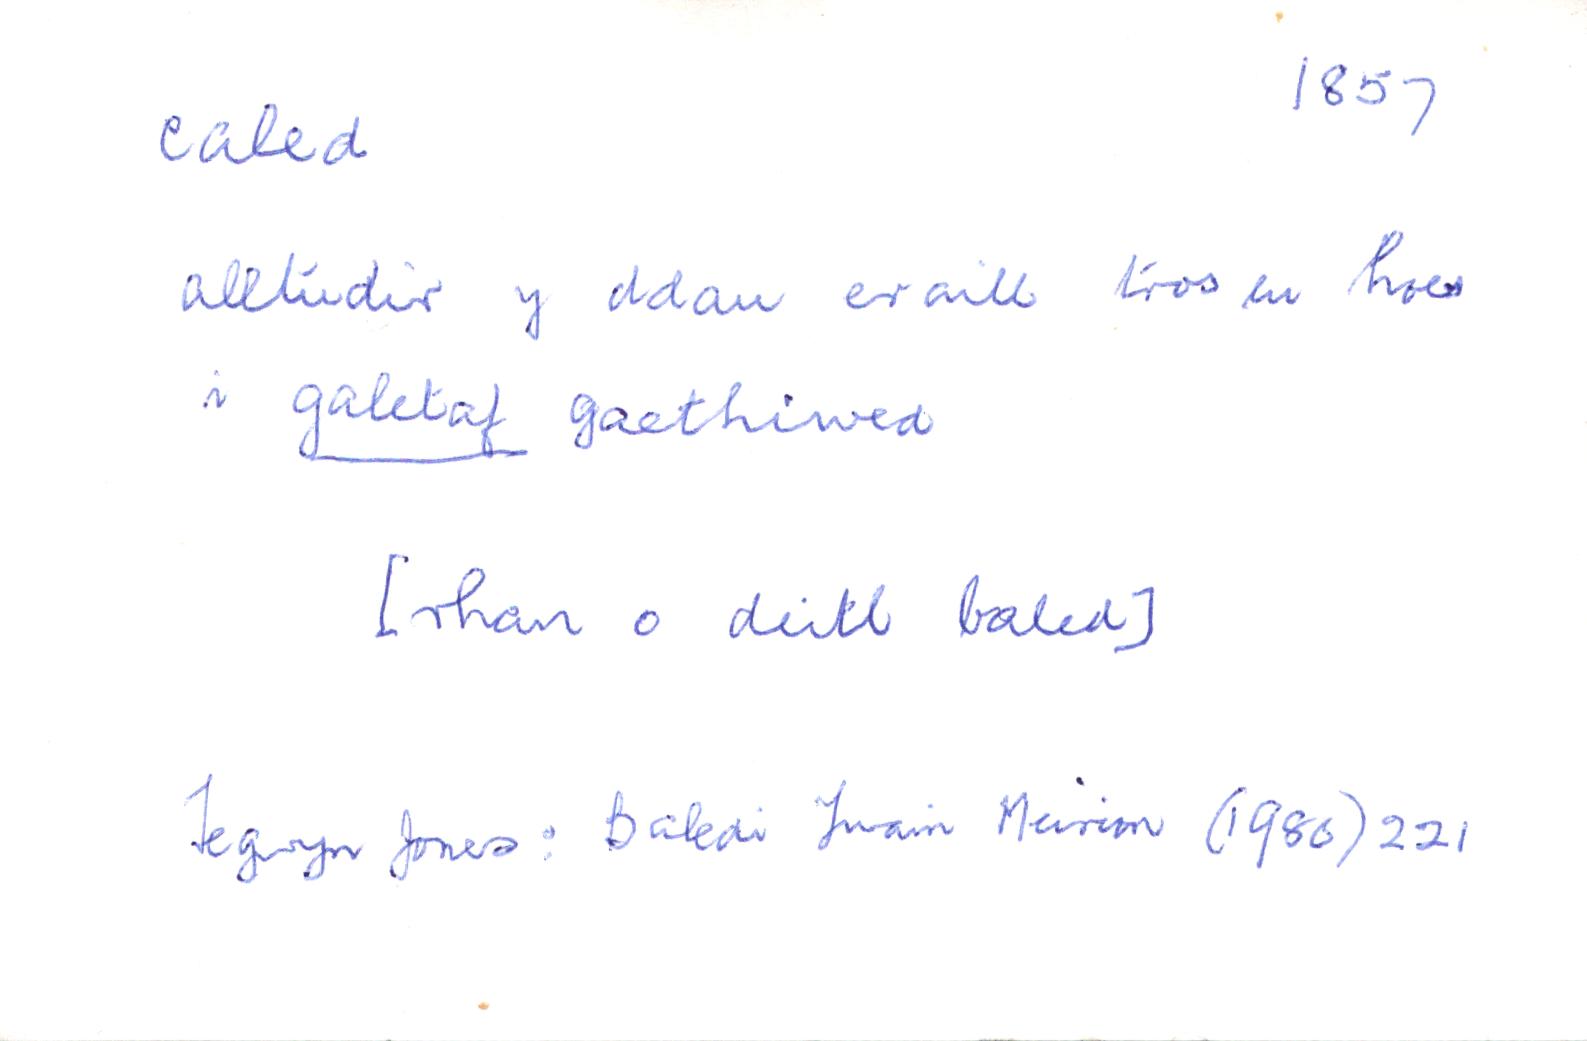 1857
caled
alltudir y ddau eraill tros eu hoes
i galetaf gaethiwed
[rhan o deitl baled]
Tegwyn Jones: Baledi Ywain Meirion (1980) 221